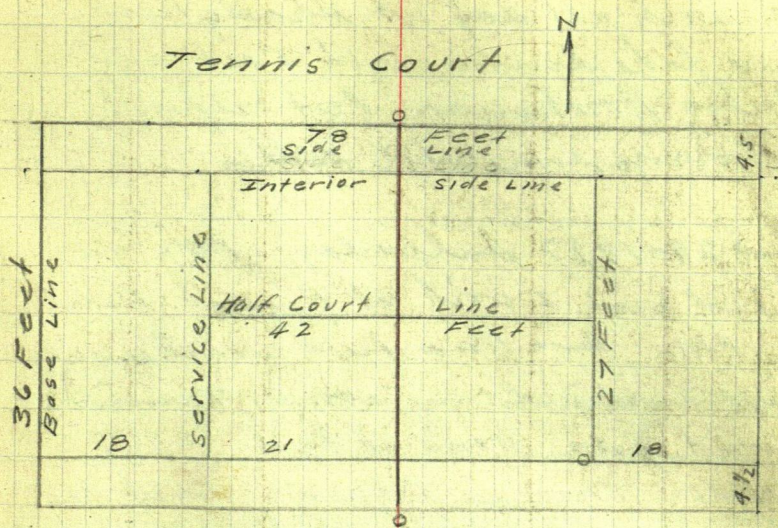 N
Tennis Court
78 Feet
Side Line
4.5
Interior Side Line
36 Feet
Base Line
Service Line
Half Court Line
42 Feet
27 Feet
18
21
18
4½